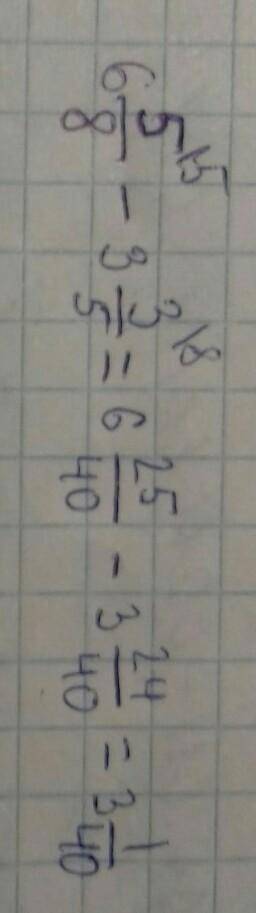 6 5/8 \5 - 3 3/5 \8 = 6 25/40 - 3 24/40 = 3 1/40